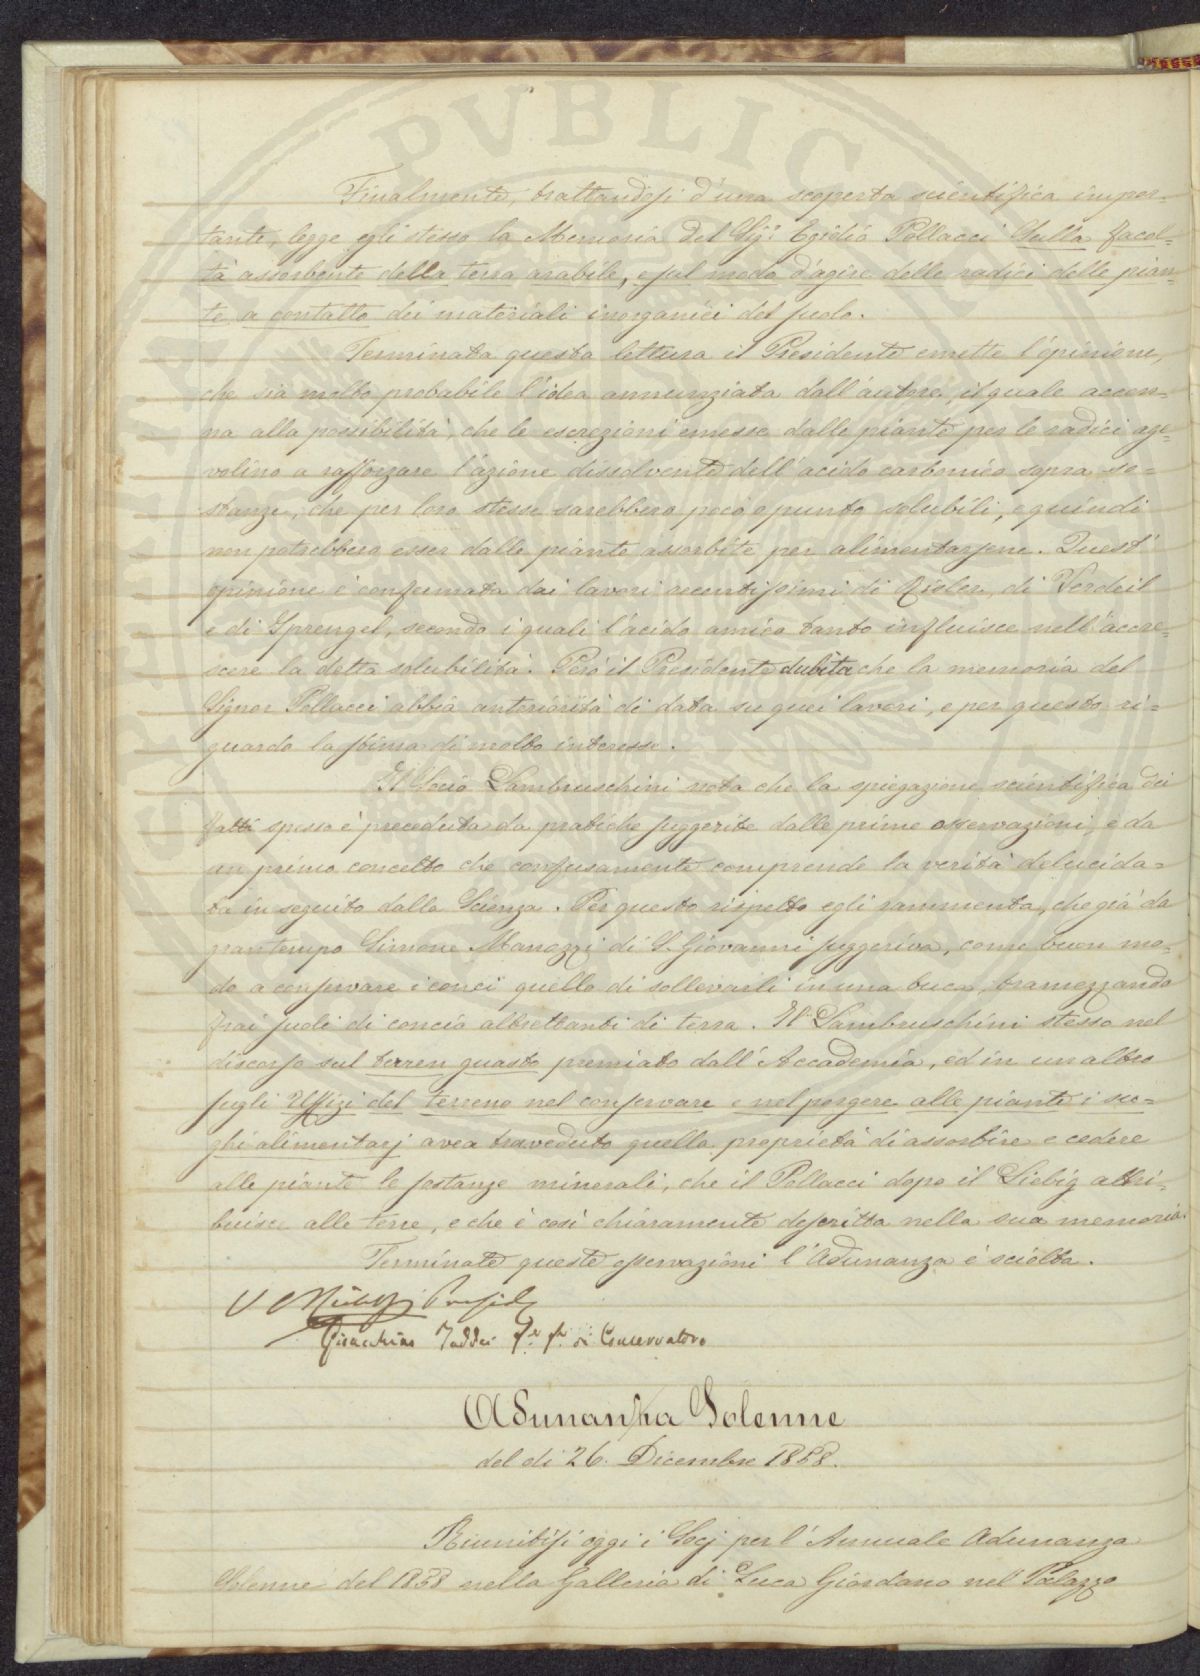 Finalmente, trattandosi d'una scoperta scientifica impor=
tante, legge egli stesso la Memoria del Sig.r Egidio Pollacci Sulla facol=
tà assorbente della terra arabile, e sul modo d'agire delle radici delle pian=
te a contatto dei materiali inorganici del suolo.
Terminata questa lettura il Presidente emette l'opinione,
che sia molto probabile l'idea annunziata dall'autore, il quale accen=
na alla possibilità, che le escrezioni emesse dalle piante per le radici age=
volino a rafforzare l'azione dissolvente dell'acido carbonico sopra so=
stanze, che per loro stesse sarebbero poco o punto solubili, e quindi
non potrebbero esser dalle piante assorbite per alimentarsene. Quest'
opinione è confermata dai lavori recentissimi di Risler, di Verdeil
e di Sprengel, secondo i quali l'acido umico tanto influisce nell'accre=
scere la detta solubilità. Però il Presidente dubita che la memoria del
Signor Pollacci abbia anteriorità di data su quei lavori, e per questo ri=
guardo la stima di molto interesse.
Il Socio Lambruschini nota che la spiegazione scientifica dei
fatti spesso è preceduta da pratiche suggerite dalle prime osservazioni, e da
un primo concetto che confusamente comprende la verità delucida=
ta in seguito dalla Scienza. Per questo rispetto egli rammenta, che già da
gran tempo Simone Manozzi di S. Giovanni suggeriva, come buon mo=
do a conservare i conci quello di sollevarli in una buca, tramezzando
frai suoli di concio altrettanti di terra. Il Lambruschini stesso nel
discorso sul terren guasto premiato dall'Accademia, ed in un altro
sugli Uffizi del terreno nel conservare e nel porgere alle piante i su=
ghi alimentarj avea traveduto quella proprietà di assorbire e cedere
alle piante le sostanze minerali, che il Pollacci dopo il Liebig attri=
buisce alle terre, e che è così chiaramente descritta nella sua memoria.
Terminate queste osservazioni l'Adunanza è sciolta.
Presid
Gioacchino Taddei f. f. di Conservatore
Adunanza Solenne
del dì 26. Dicembre 1858.
Riunitisi oggi i Socj per l'Annuale Adunanza
Solenne del 1858 nella Galleria di Luca Giordano nel Palazzo